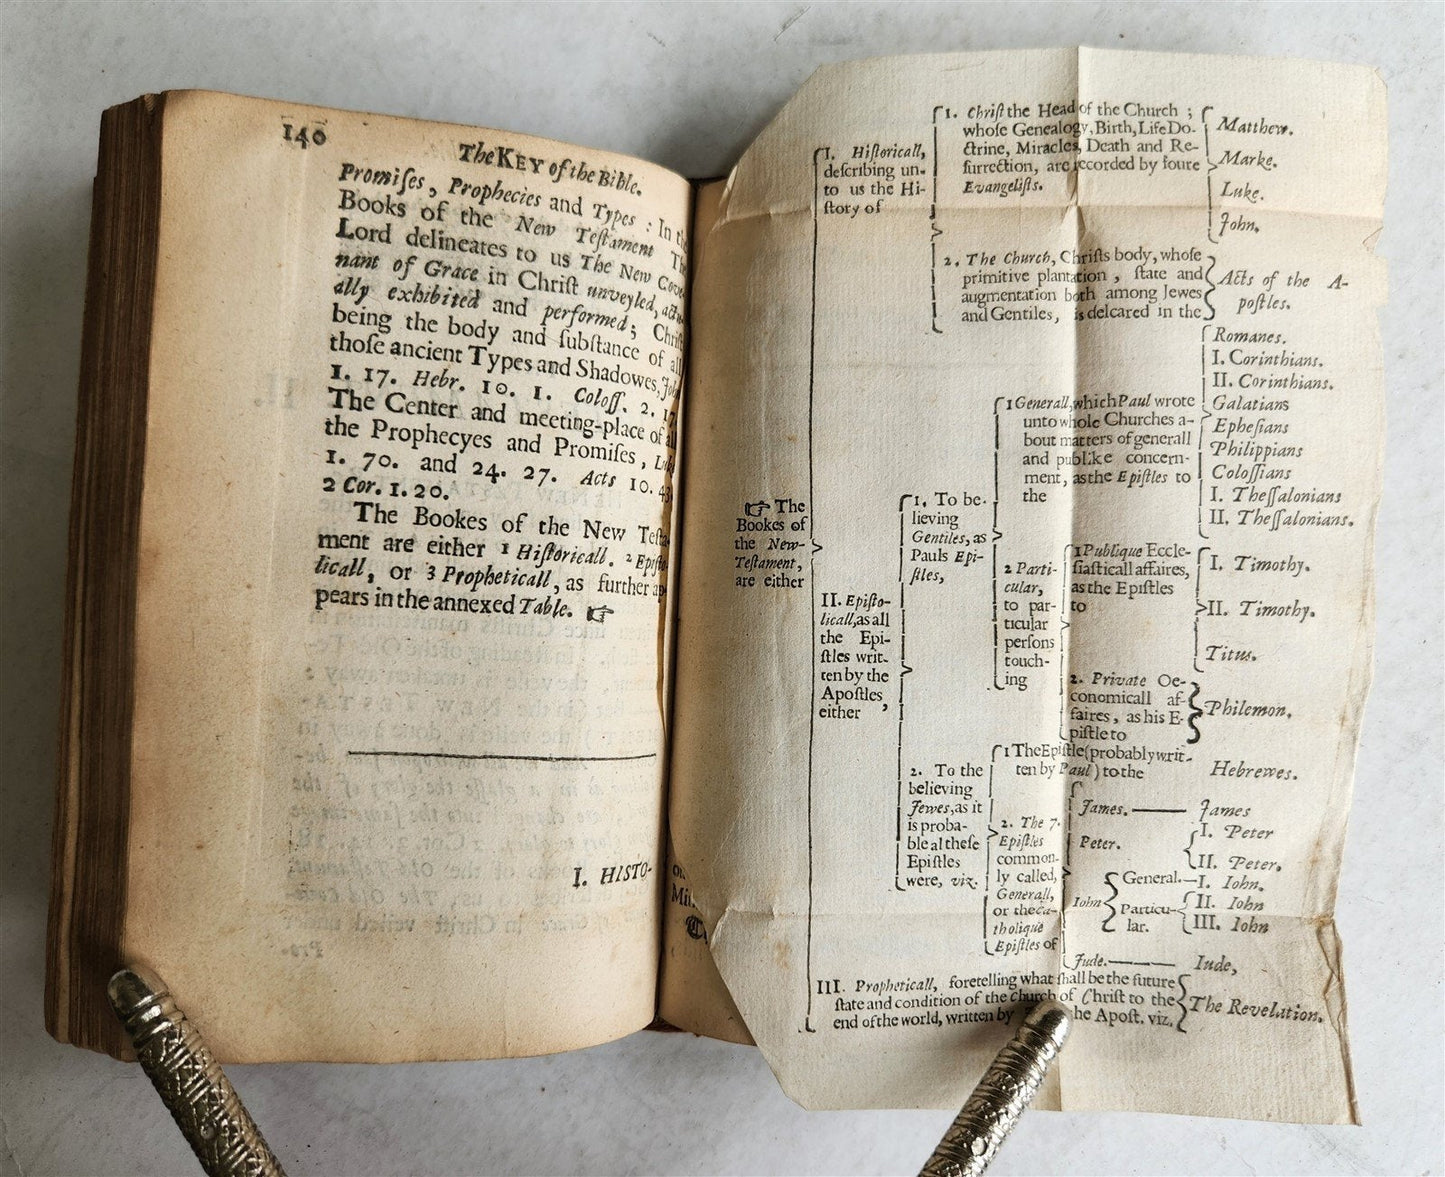 140
The KEY of the Bible.
Promiſes, Prophecies and Types: In the
Books of the New Teſtament The
Lord delineates to us The New Cove-
nant of Grace in Chriſt unveyled, actu-
ally exhibited and performed; Chriſt
being the body and ſubſtance of all
thoſe ancient Types and Shadowes, Joh.
1. 17. Hebr. 10. 1. Coloſſ. 2. 17.
The Center and meeting-place of all
the Prophecyes and Promiſes, Luk.
1. 70. and 24. 27. Acts 10. 43.
2 Cor. 1. 20.
The Bookes of the New Teſta-
ment are either 1 Hiſtoricall. 2 Epiſto-
licall, or 3 Propheticall, as further ap-
pears in the annexed Table. ☞
I. HISTO-
☞ The
Bookes of
the New-
Teſtament,
are either
I. Hiſtoricall,
deſcribing un-
to us the Hi-
ſtory of
1. Chriſt the Head of the Church;
whoſe Genealogy, Birth, Life Do-
ctrine, Miracles, Death and Re-
ſurrection, are recorded by foure
Evangeliſts.
Matthew.
Marke.
Luke.
John.
2. The Church, Chriſts body, whoſe
primitive plantation, ſtate and
augmentation both among Jewes
and Gentiles, is delcared in the
Acts of the A-
poſtles.
II. Epiſto-
licall, as all
the Epi-
ſtles writ-
ten by the
Apoſtles,
either
1. To be-
lieving
Gentiles, as
Pauls Epi-
ſtles,
1 Generall, which Paul wrote
unto whole Churches a-
bout matters of generall
and publike concern-
ment, as the Epiſtles to
the
Romanes.
I. Corinthians.
II. Corinthians.
Galatians
Epheſians
Philippians
Coloſſians
I. Theſſalonians
II. Theſſalonians.
2 Parti-
cular,
to par-
ticular
perſons
touch-
ing
1 Publique Eccle-
ſiaſticall affaires,
as the Epiſtles
to
I. Timothy.
II. Timothy.
Titus.
2. Private Oe-
conomicall af-
faires, as his E-
piſtle to
Philemon.
2. To the
believing
Jewes, as it
is proba-
ble al theſe
Epiſtles
were, viz.
1 The Epiſtle (probably writ-
ten by Paul) to the
Hebrewes.
2. The 7.
Epiſtles
common-
ly called,
Generall,
or the Ca-
tholique
Epiſtles of
James. —— James
Peter.
I. Peter
II. Peter.
Iohn
General. — I. Iohn.
Particu-
lar.
II. Iohn
III. Iohn
Jude. —— Iude,
III. Propheticall, foretelling what ſhall be the future
ſtate and condition of the Church of Chriſt to the
end of the world, written by the Apoſt. viz.
The Revelation.